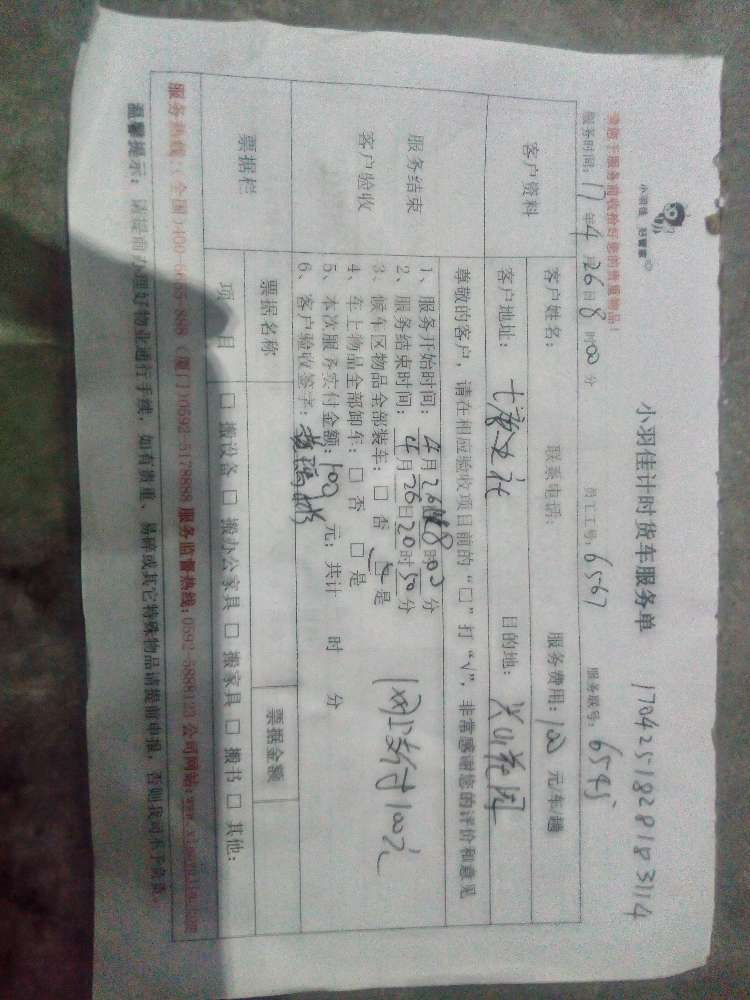 小羽佳 好管家
小羽佳计时货车服务单 1704251828183114
请做于服务前收拾好您的贵重物品！
服务时间：17年4月26日8时00分 员工工号：6567 服务账号：6545
客户资料
客户姓名： 联系电话： 服务费用：100元/车/趟
客户地址： 目的地：
尊敬的客户，请在相应验收项目前的“□”打“√”，非常感谢您的评价和意见
服务结束
客户验收
1、服务开始时间：4月26日8时00分
2、服务结束时间：4月26日20时50分
3、候车区物品全部装车：□否 □是
4、车上物品全部卸车：□否 □是
5、本次服务实付金额：100元；共计 时 分
6、客户验收签字：
网上支付100元
票据栏
票据名称 票据金额
项目 □搬设备 □搬办公家具 □搬家具 □搬书 □其他：
服务监督热线：0592-5888123 公司网站：
温馨提示：请提前办理好物业通行手续，如有贵重、易碎或其它特殊物品请提前申报，否则我司不予负责。